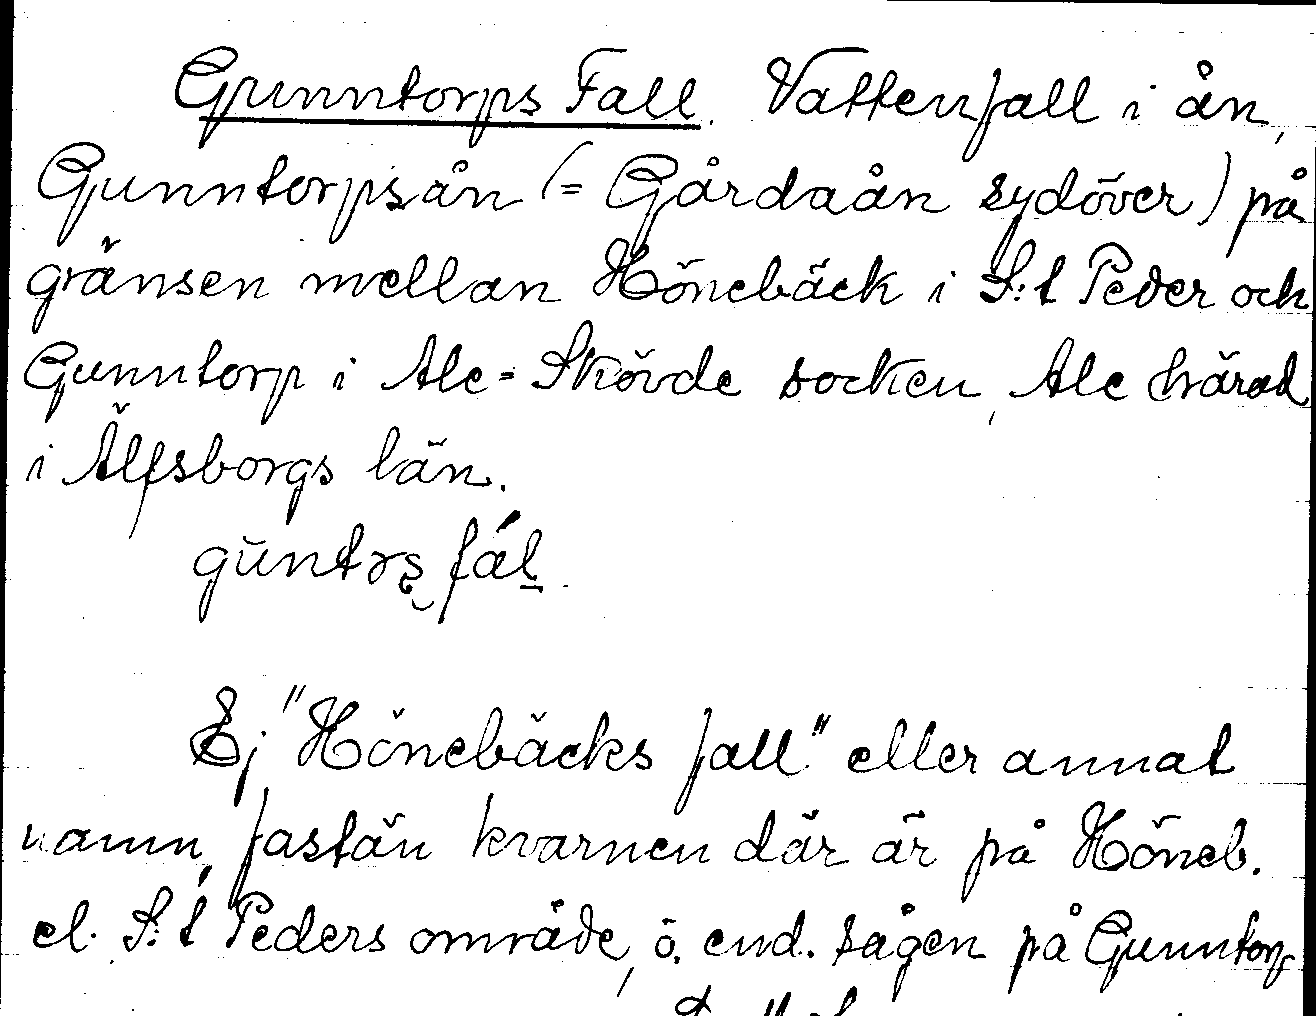 Gunntorps Fall. Vattenfall i ån,
Gunntorpsån (= Gårdaån sydöver) på
gränsen mellan Hönebäck i S:t Peder och
Gunntorp i Ale-Skövde socken, Ale härad
i Älfsborgs län.
gŭntrs fál
Ej "Hönebäcks fall" eller annat
namn, fastän kvarnen där är på Höneb.
el. S:t Peders område, o. end. sågen på Gunntorp